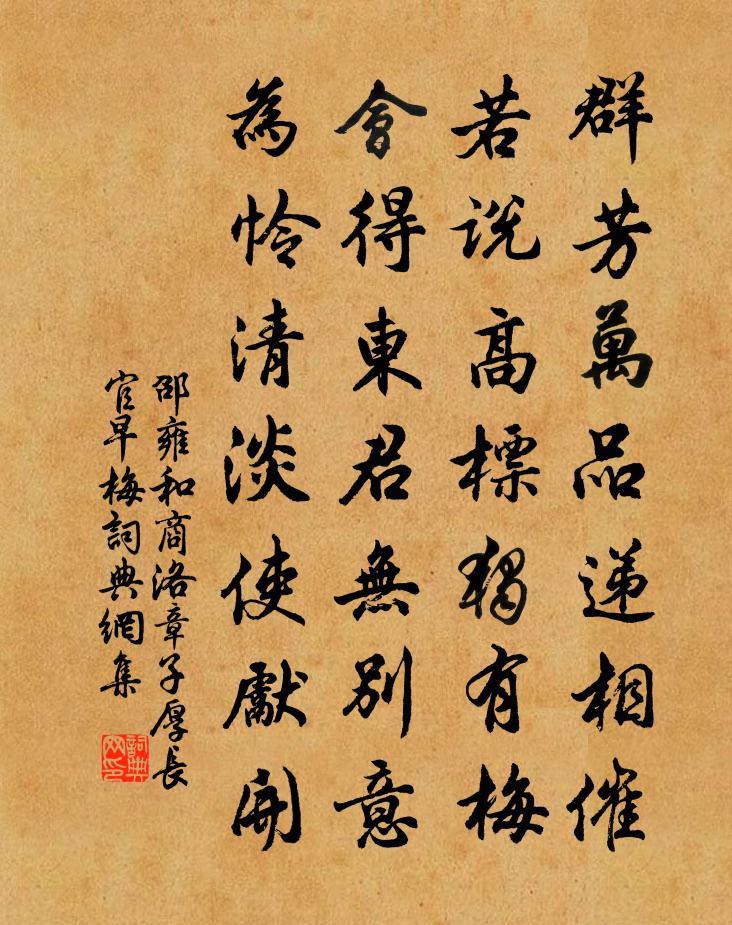 群芳萬品递相催
若说高標獨有梅
會得東君無别意
為怜清淡使獻開
邵雍和商洛章子厚長
官早梅詞典網集
詞典
网印